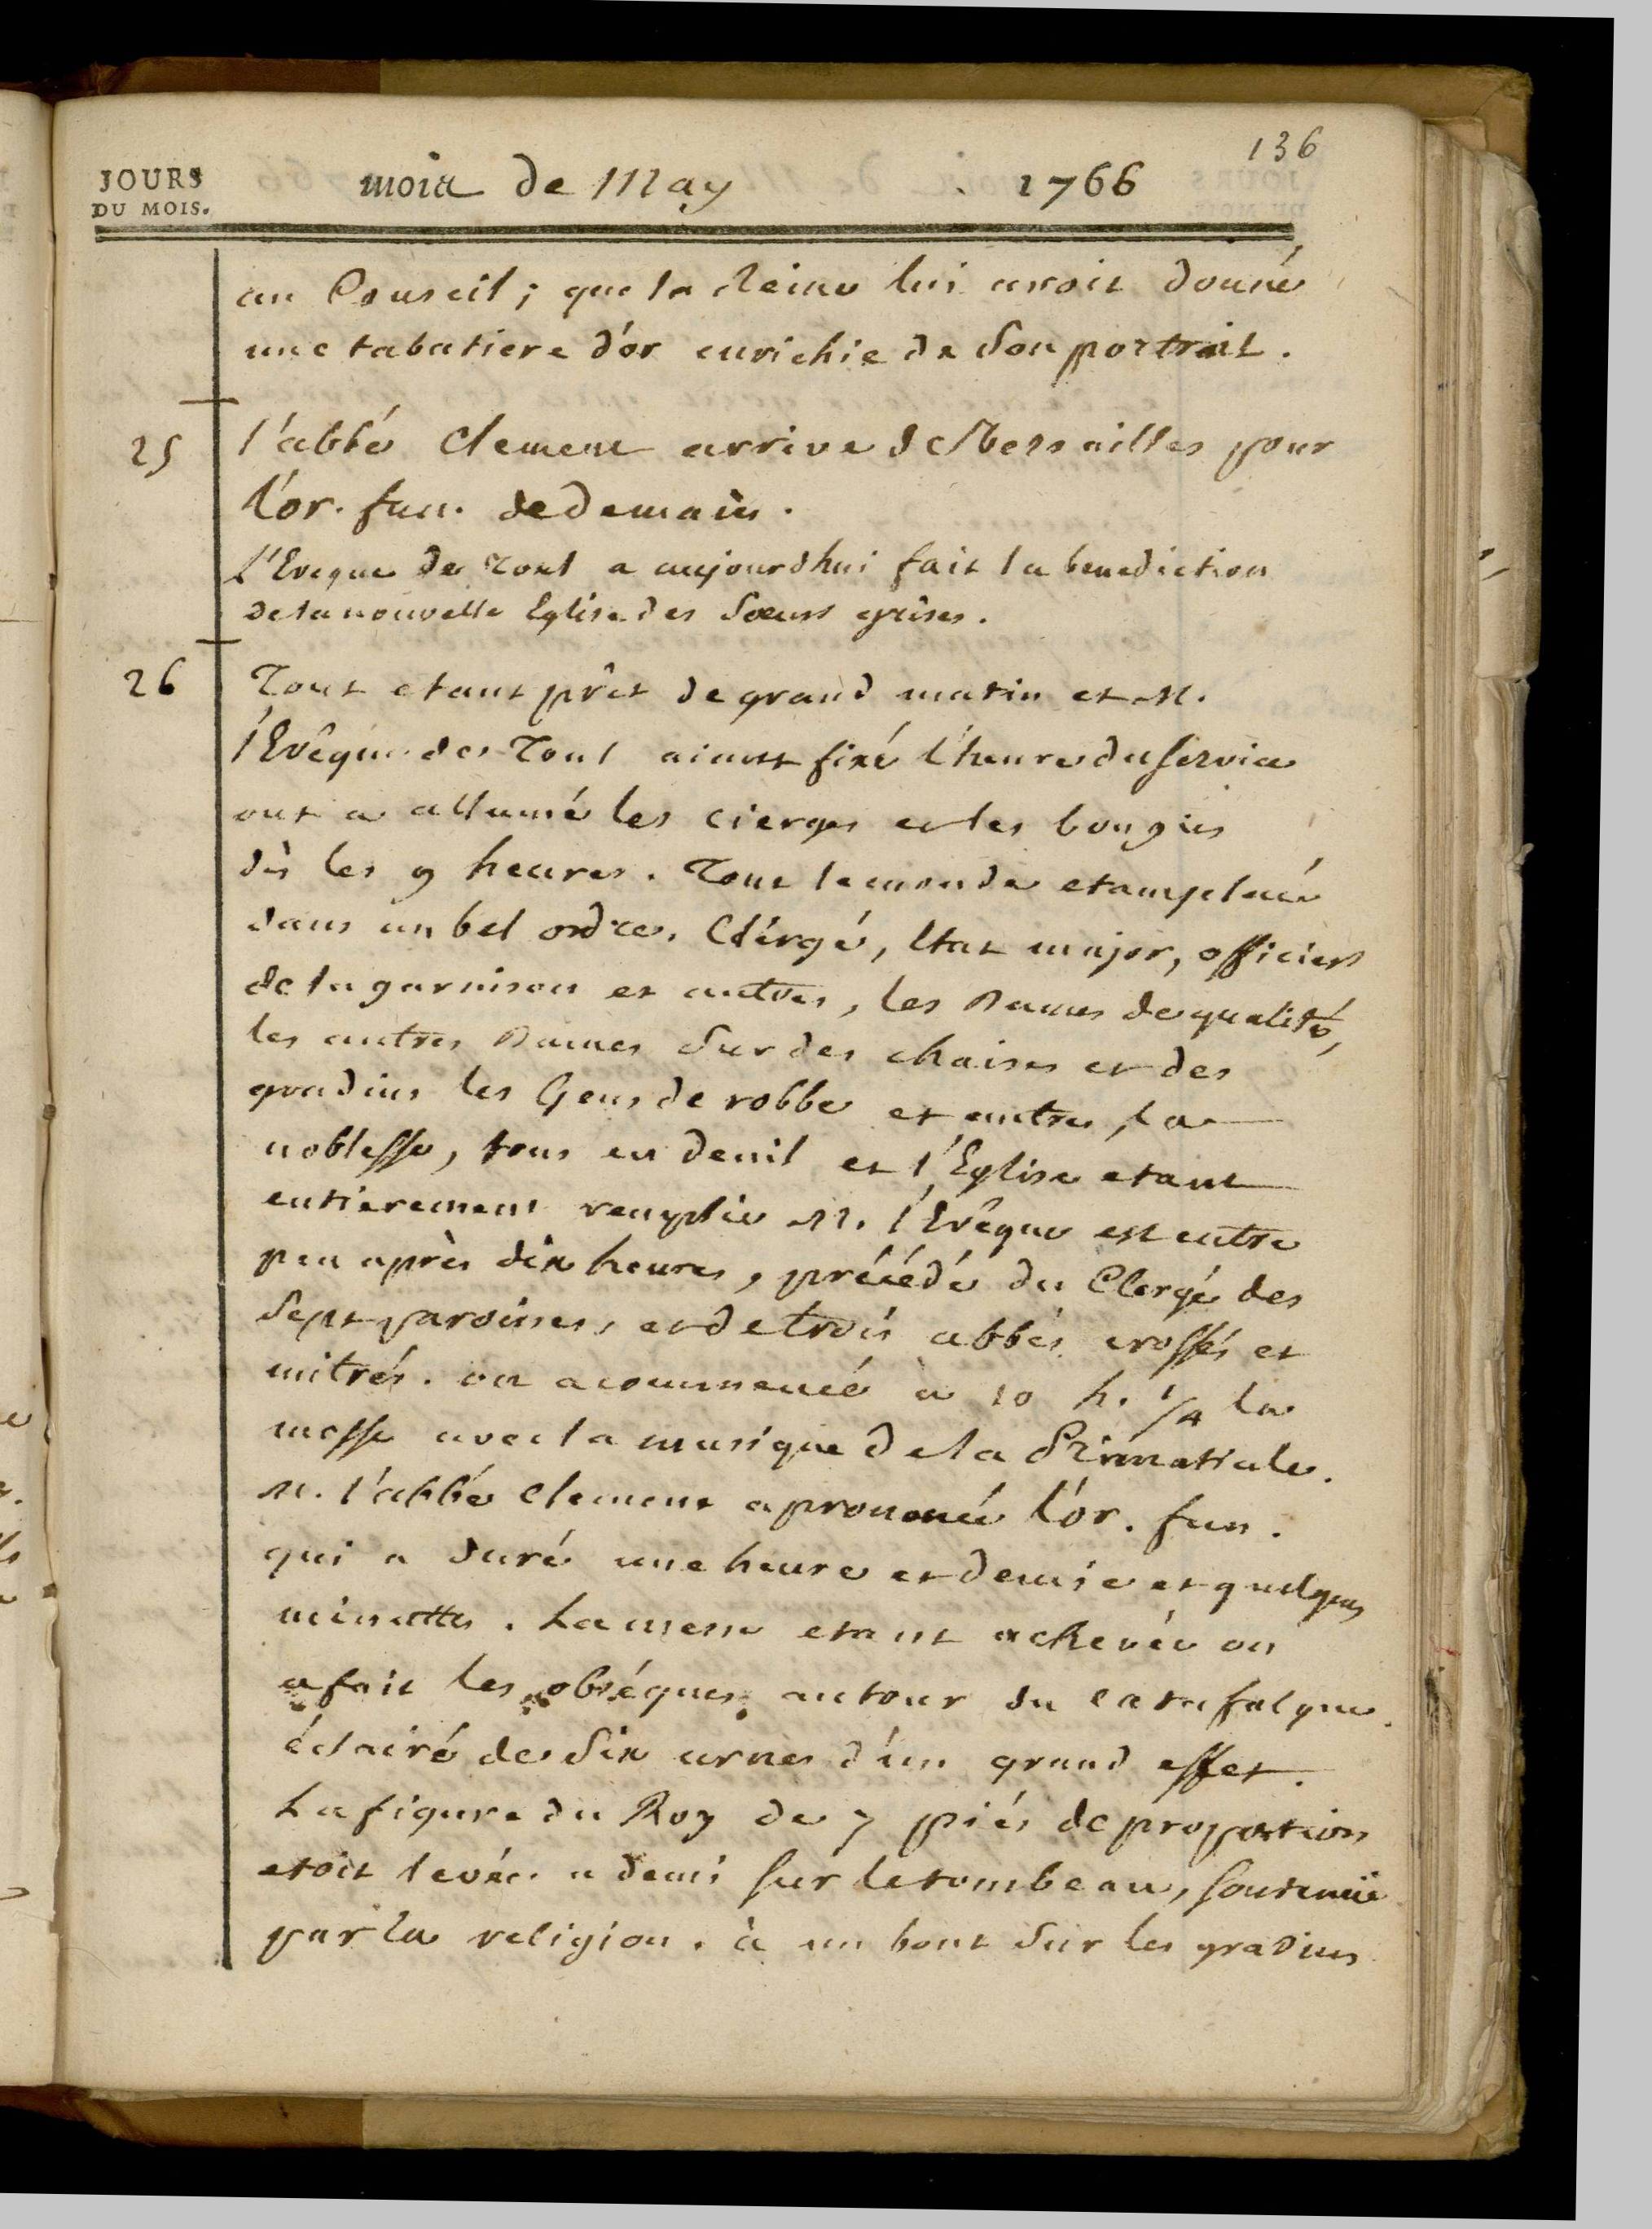 136
JOURS
DU MOIS.
mois de May 1766
au Conseil; que la Reine lui avoit donné
une tabatiere d'or enrichie de son portrait.
25 l'abbé Clement arrive de Versailles pour
l'or. fun. de demain.
l'Eveque de Toul a aujourdhui fait la benediction
de la nouvelle Eglise des Sœurs grises.
26 Tout etant prêt de grand matin et M.
l'Evêque de Toul aiant fixé l'heure du service
ont a allumé les cierges et les bougies
dès les 9 heures. Tout le monde etant placé
dans un bel ordre, Clergé, Etat major, officiers
de la garnison et autres, les Dames de qualité,
les autres Dames sur des chaises et des
gradins les Gens de robbe et autres, la
noblesse, tous en deuil et l'Eglise etant
entierement remplie M. l'Evêque est entre
peu après dix heures, précédé du Clergé des
sept paroisses, et de trois abbés crossés et
mitrés. on a commencé à 10 h. 1/4 la
messe avec la musique de la Primatiale.
M. l'abbé Clement a prononcé l'or. fun.
qui a duré une heure et demie et quelques
minuttes. La messe etant achevée on
a fait les obséques autour du catafalque
éclairé de six urnes d'un grand effet.
La figure du Roy de 7 piés de proportion
etoit levée a demi sur le tombeau, soutenuë
par la religion. à un bout sur les gradins